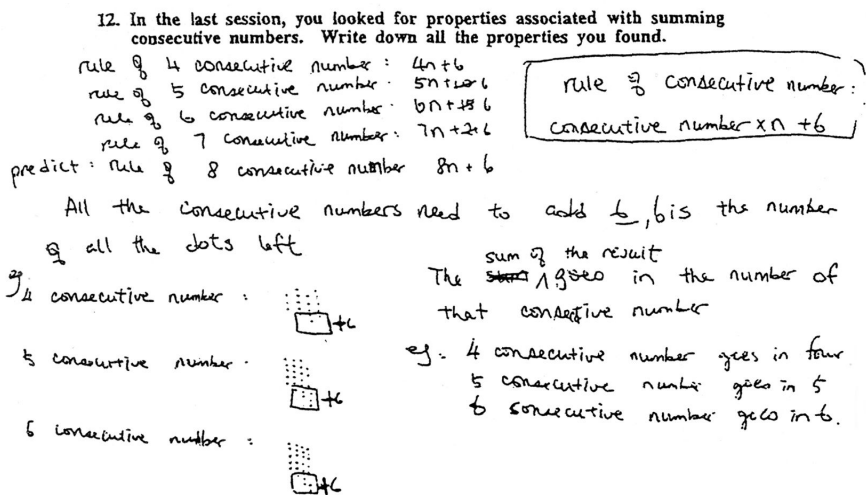 12. In the last session, you looked for properties associated with summing
consecutive numbers. Write down all the properties you found.
rule of 4 consecutive number : 4n+6
rule of 5 consecutive number . 5n + 6
rule of 6 consecutive number . 6n + 6
rule of 7 consecutive number : 7n + 6
predict : rule of 8 consecutive number 8n + 6
rule of consecutive number :
consecutive number x n + 6
All the consecutive numbers need to add 6, 6 is the number
of all the dots left
eg 4 consecutive number :
+6
5 consecutive number .
+6
6 consecutive number :
+6
sum of the result
The goes in the number of
that consective number
eg. 4 consecutive number goes in four
5 consecutive number goes in 5
6 sonsecutive number goes in 6.